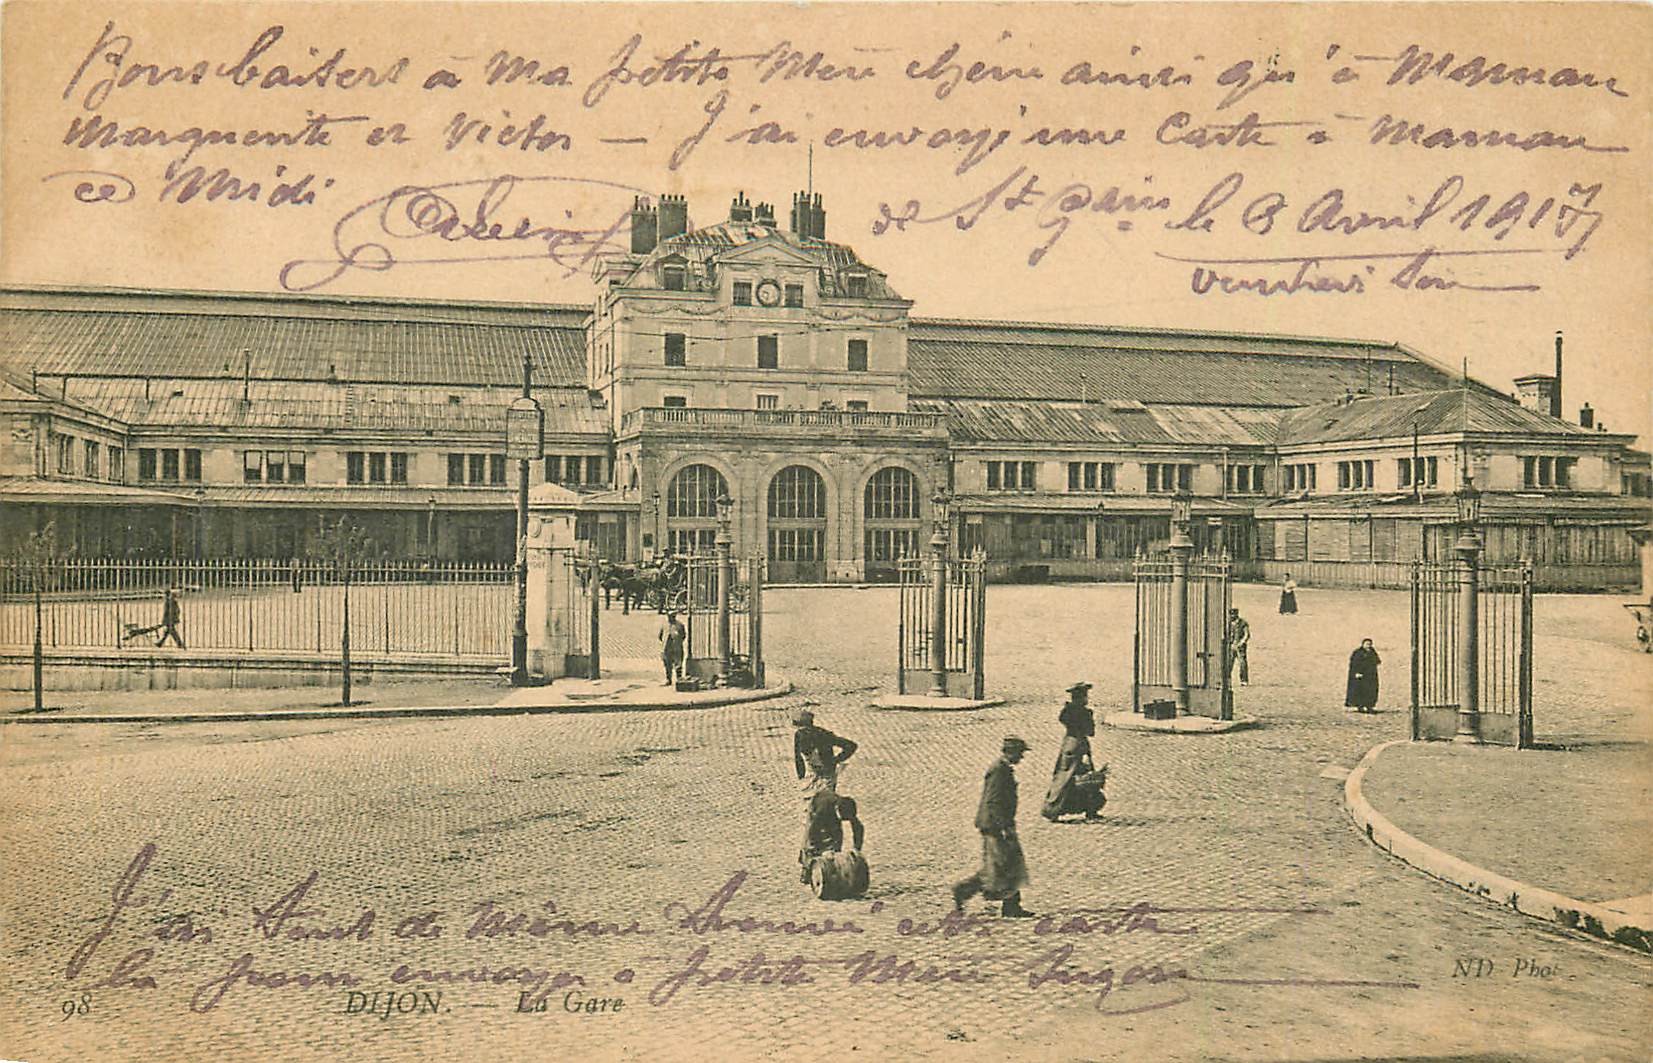 Bons baisers à Ma petite Mère chérie ainsi qu'à Maman
Marguerite et Victor — J'ai envoyé une Carte à Maman
ce Midi
de St le 3 Avril 1917
Vendredi Soir
J'ai tout de Même trouvé cette carte
là pour envoyer à petite Mère
98 DIJON. — La Gare
ND Phot.